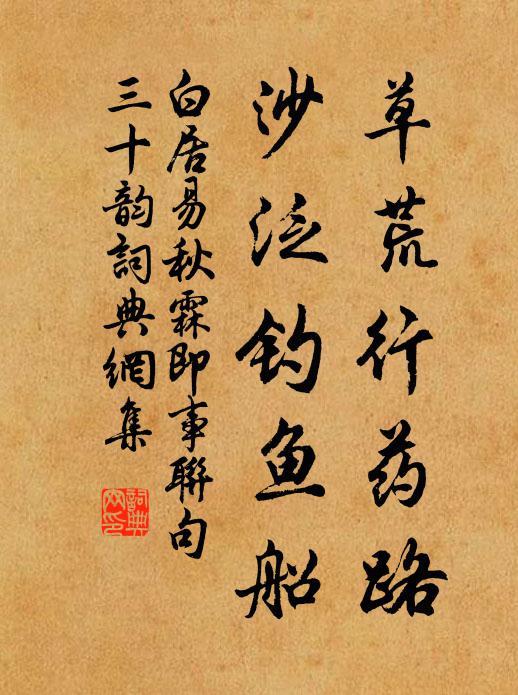 草荒行药路
沙泛钓鱼船
白居易秋霖即事聯句
三十韵詞典網集
詞典
网印